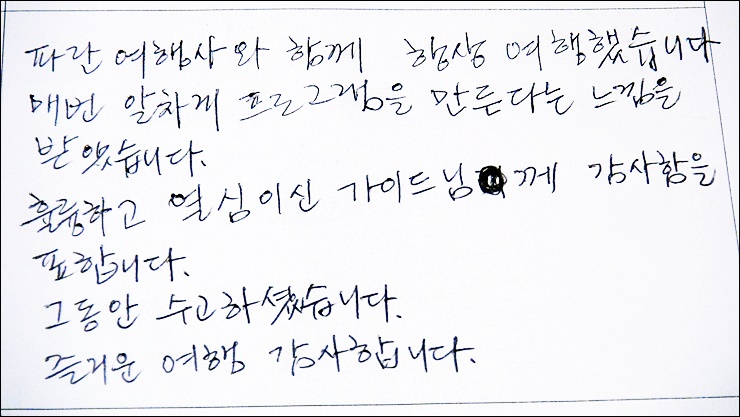 파란 여행사와 함께 항상 여행했습니다
매번 알차게 프로그램을 만든다는 느낌을
받았습니다.
훌륭하고 열심이신 가이드님께 감사함을
표합니다.
그동안 수고하셨습니다.
즐거운 여행 감사합니다.